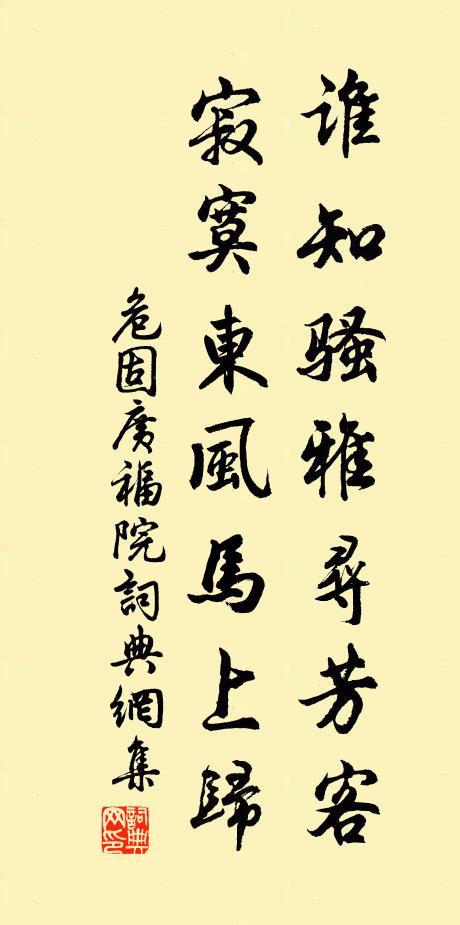 誰知騷雅尋芳客
寂寞東風馬上歸
危固廣福院詞典網集
詞典網印